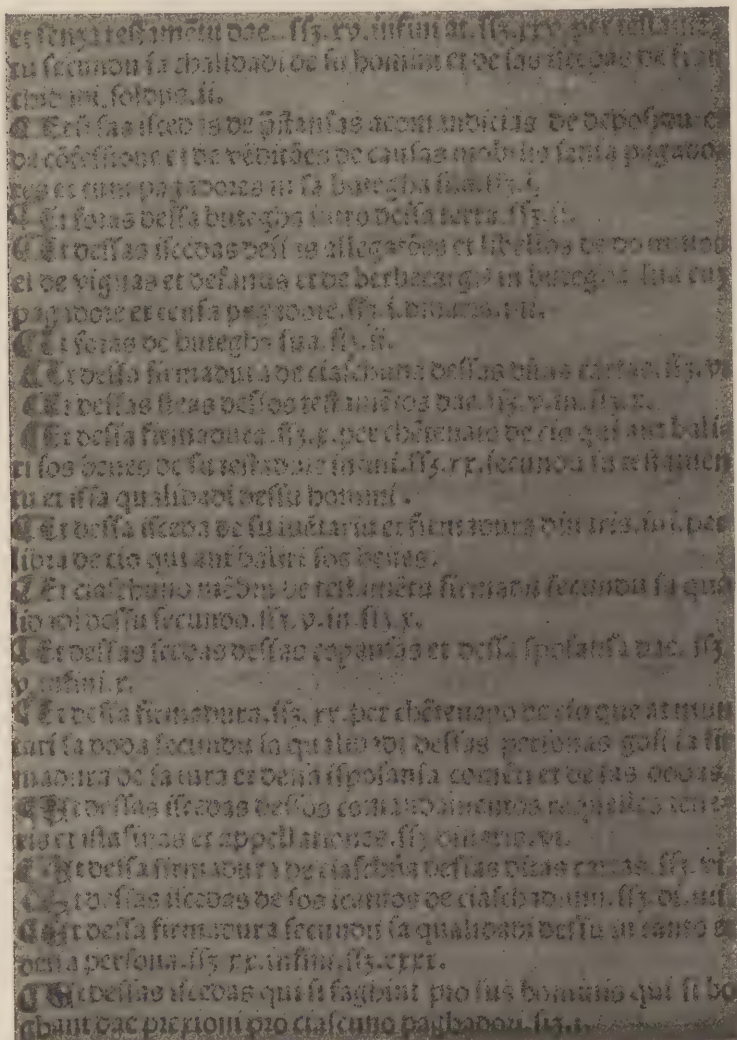 et senza testamẽtu dae. ſſʒ. xv. infini at. ſſʒ. xxv. per testamẽ
tu secundu sa chalidadi de su homini et de sas iscedas de fran
chidadi. soldus. ii.
¶ Et si sas iscedas de p̃stansas acomandicias de deposidu e
de cõfessione et de vẽditões de causas mobilis senza pagado
res et cum pagadores in sa butegha sua. ſſʒ. i.
¶ Et foras dessa butegha intro dessa terra. ſſʒ. ii.
¶ Et dessas iscedas dessas allegatões et libellos de domino
et de vignas et de et de in butegha sua cun
pagadore et senza pagadore. ſſʒ. i.
¶ Et foras de butegha sua. ſſʒ. ii.
¶ Et dessa firmadura de ciaschuna dessas ditas cartas. ſſʒ. v.
¶ Et dessas dessos testamẽtos dae. ſſʒ. v. in. ſſʒ. x.
¶ Et dessa firmadura. ſſʒ. x. per chẽtenaio de cio qui ant bali
ri sos benes de su testadore in fini. ſſʒ. xx. secundu sa testamen
tu et issa qualidadi dessu homini.
¶ Et dessa isceda de su et firmadura dinaris. iii. per
libra de cio qui ant baliri sos benes.
¶ Et ciaschuno de testamẽtu firmadu secundu sa qua
lidadi dessu secundo. ſſʒ. v. in. ſſʒ. x.
¶ Et dessas iscedas dessas copansas et dessa sposansa dae. ſſʒ
v. infini. x.
¶ Et dessa firmadura. ſſʒ. xx. per chẽtenayo de cio que at mun
tari sa doda secundu sa qualidadi dessas personas gosi sa fir
madura de sa iura et dessa isposansa comẽti et de sas dodas
¶ Et dessas iscedas dessos comandamentos
et issa et appellationes. ſſʒ dinaris. vi.
¶ Et dessa firmadura de ciaschũa dessas ditas cartas. ſſʒ. vi.
¶ Et dessas iscedas de sos de ciaschadunu. ſſʒ.
¶ Et dessa firmadura secundu sa qualidadi dessu e
dessa persona. ſſʒ xx. infini. ſſʒ. xxxx.
¶ Et dessas iscedas qui si faghint pro sus hominis qui si bo
ghant dae prexioni pro ciascuno paghadou. ſſʒ. i.